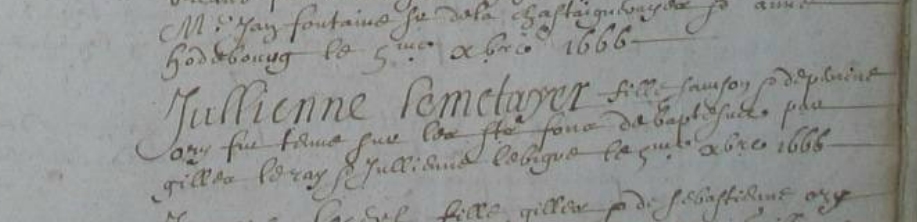 Mr Jan fontaine sr de la Chastaigneraye et anne
hodebourg le 5me xbre 1666
Jullienne Lemetayer fille samson et de perrine
ory fut tenue sur les sts fons de baptesme par
gilles leray et Jullienne lebigne le 5me xbre 1666
fille gilles et de sebastienne ory